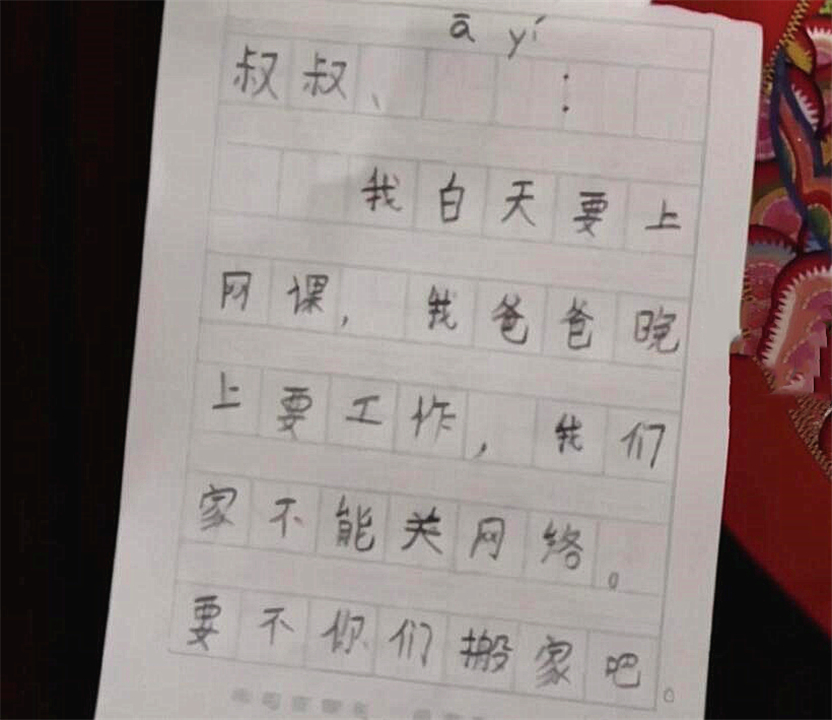 ā yí
叔叔、 :
我白天要上
网课，我爸爸晚
上要工作，我们
家不能关网络。
要不你们搬家吧。